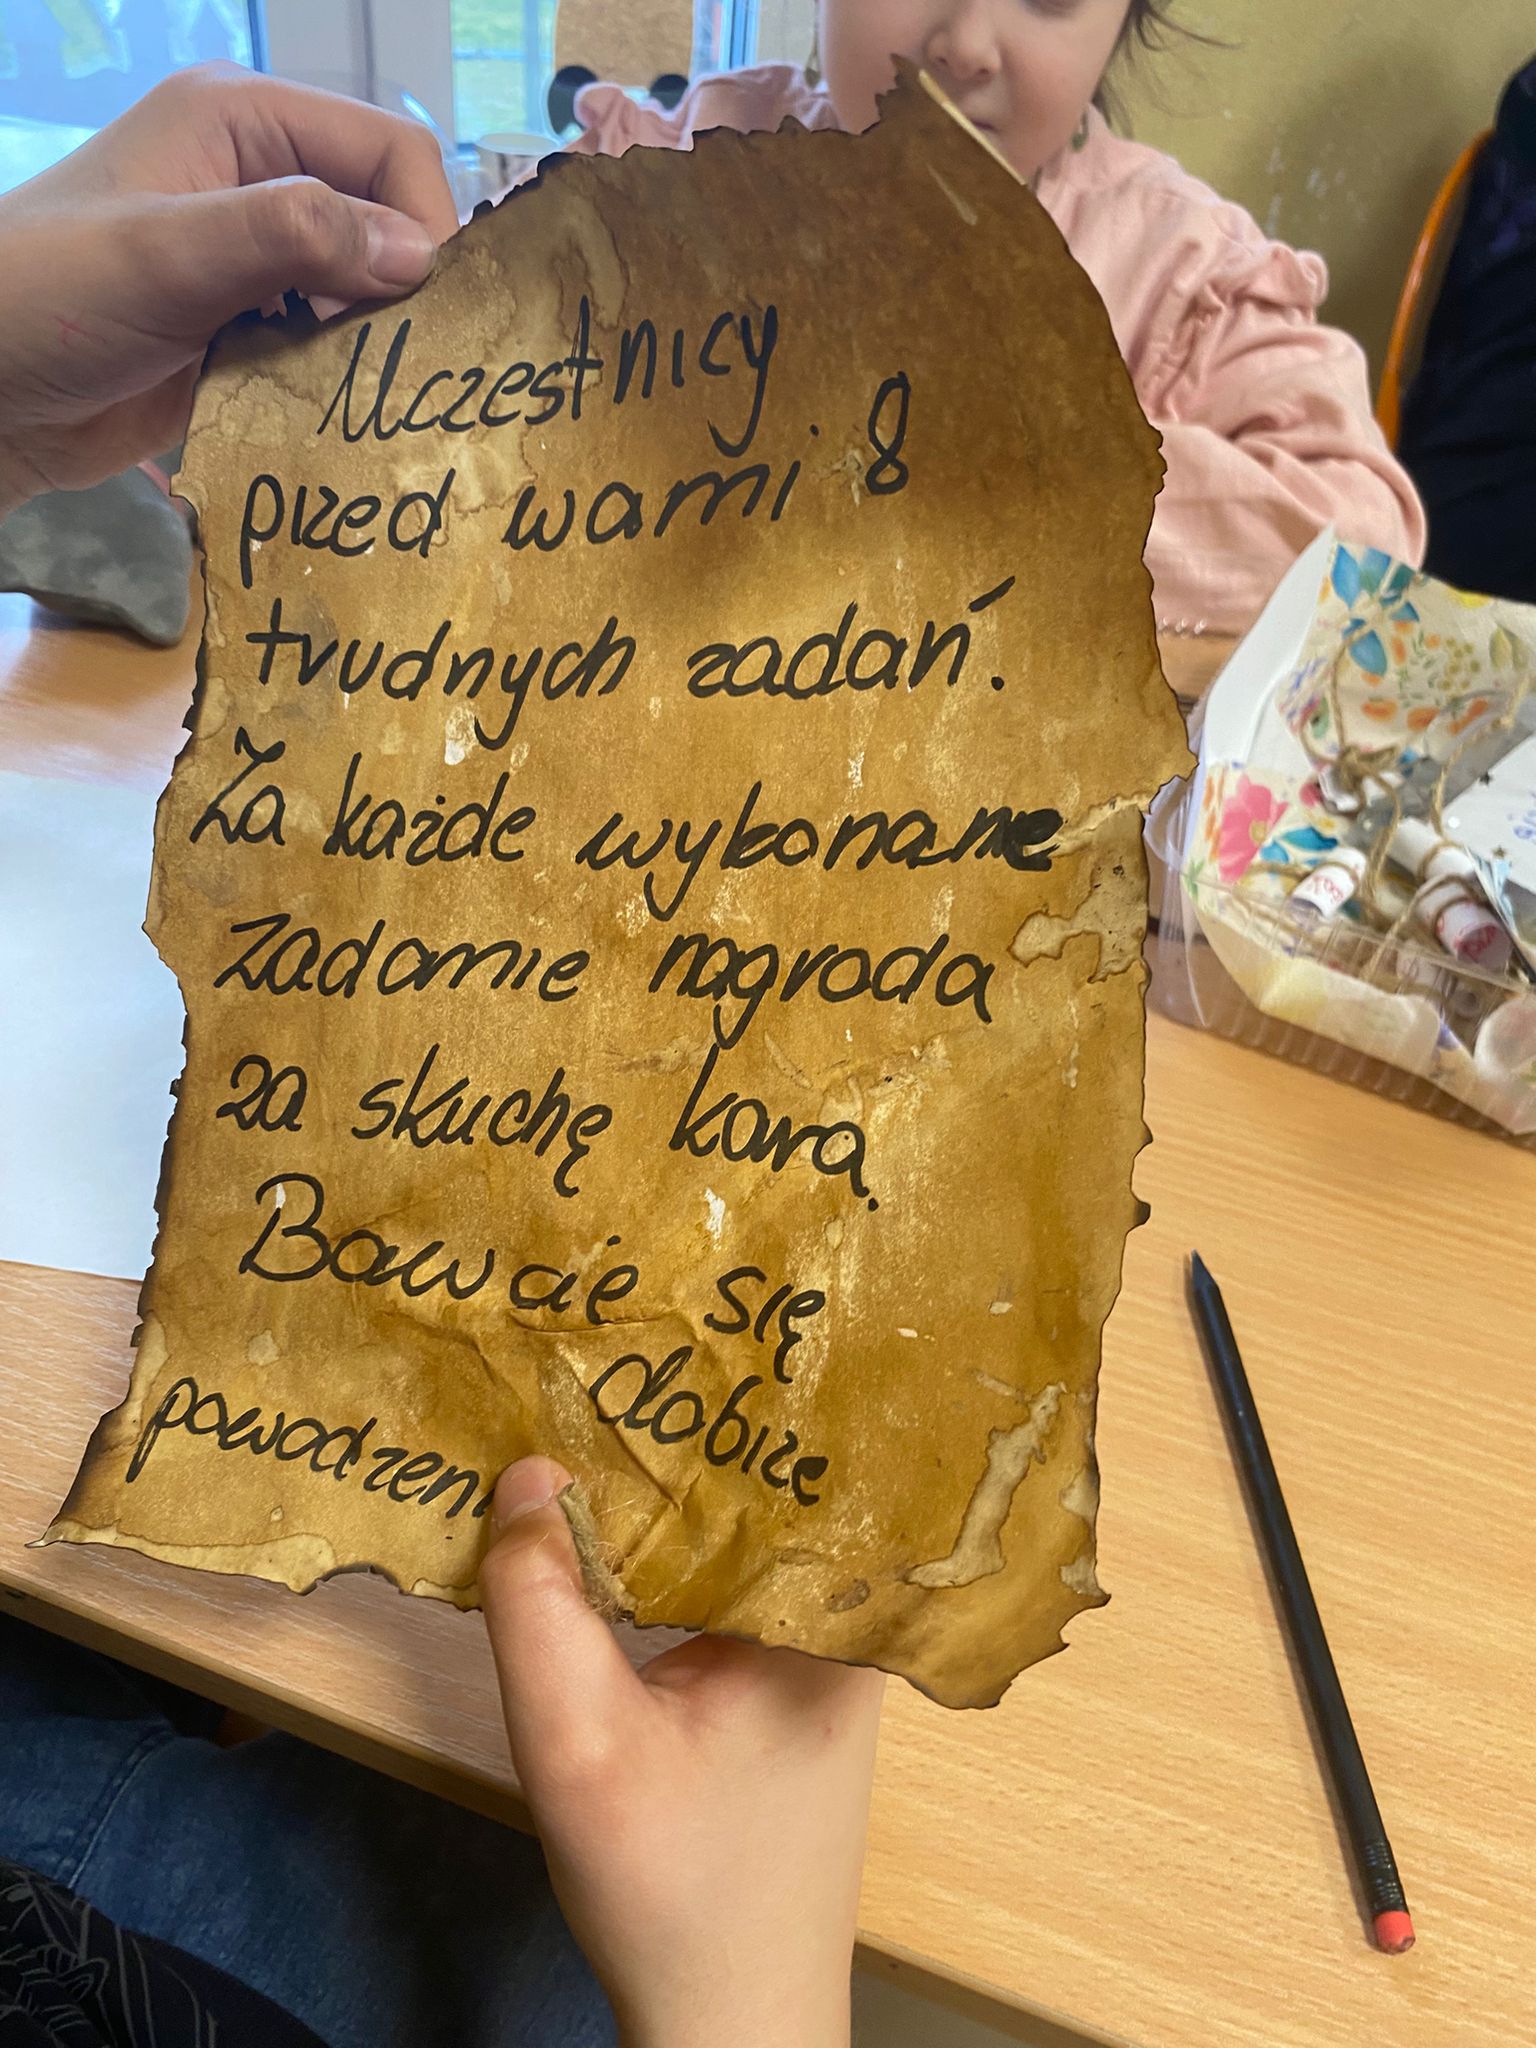 Uczestnicy
przed wami 8
trudnych zadań.
Za każde wykonane
zadanie nagroda
za skuchę kara.
Bawcie się
dobrze
powodzeni